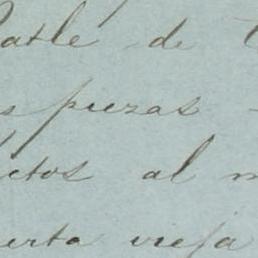 Catle de
piezas
ctos al
erta vieja